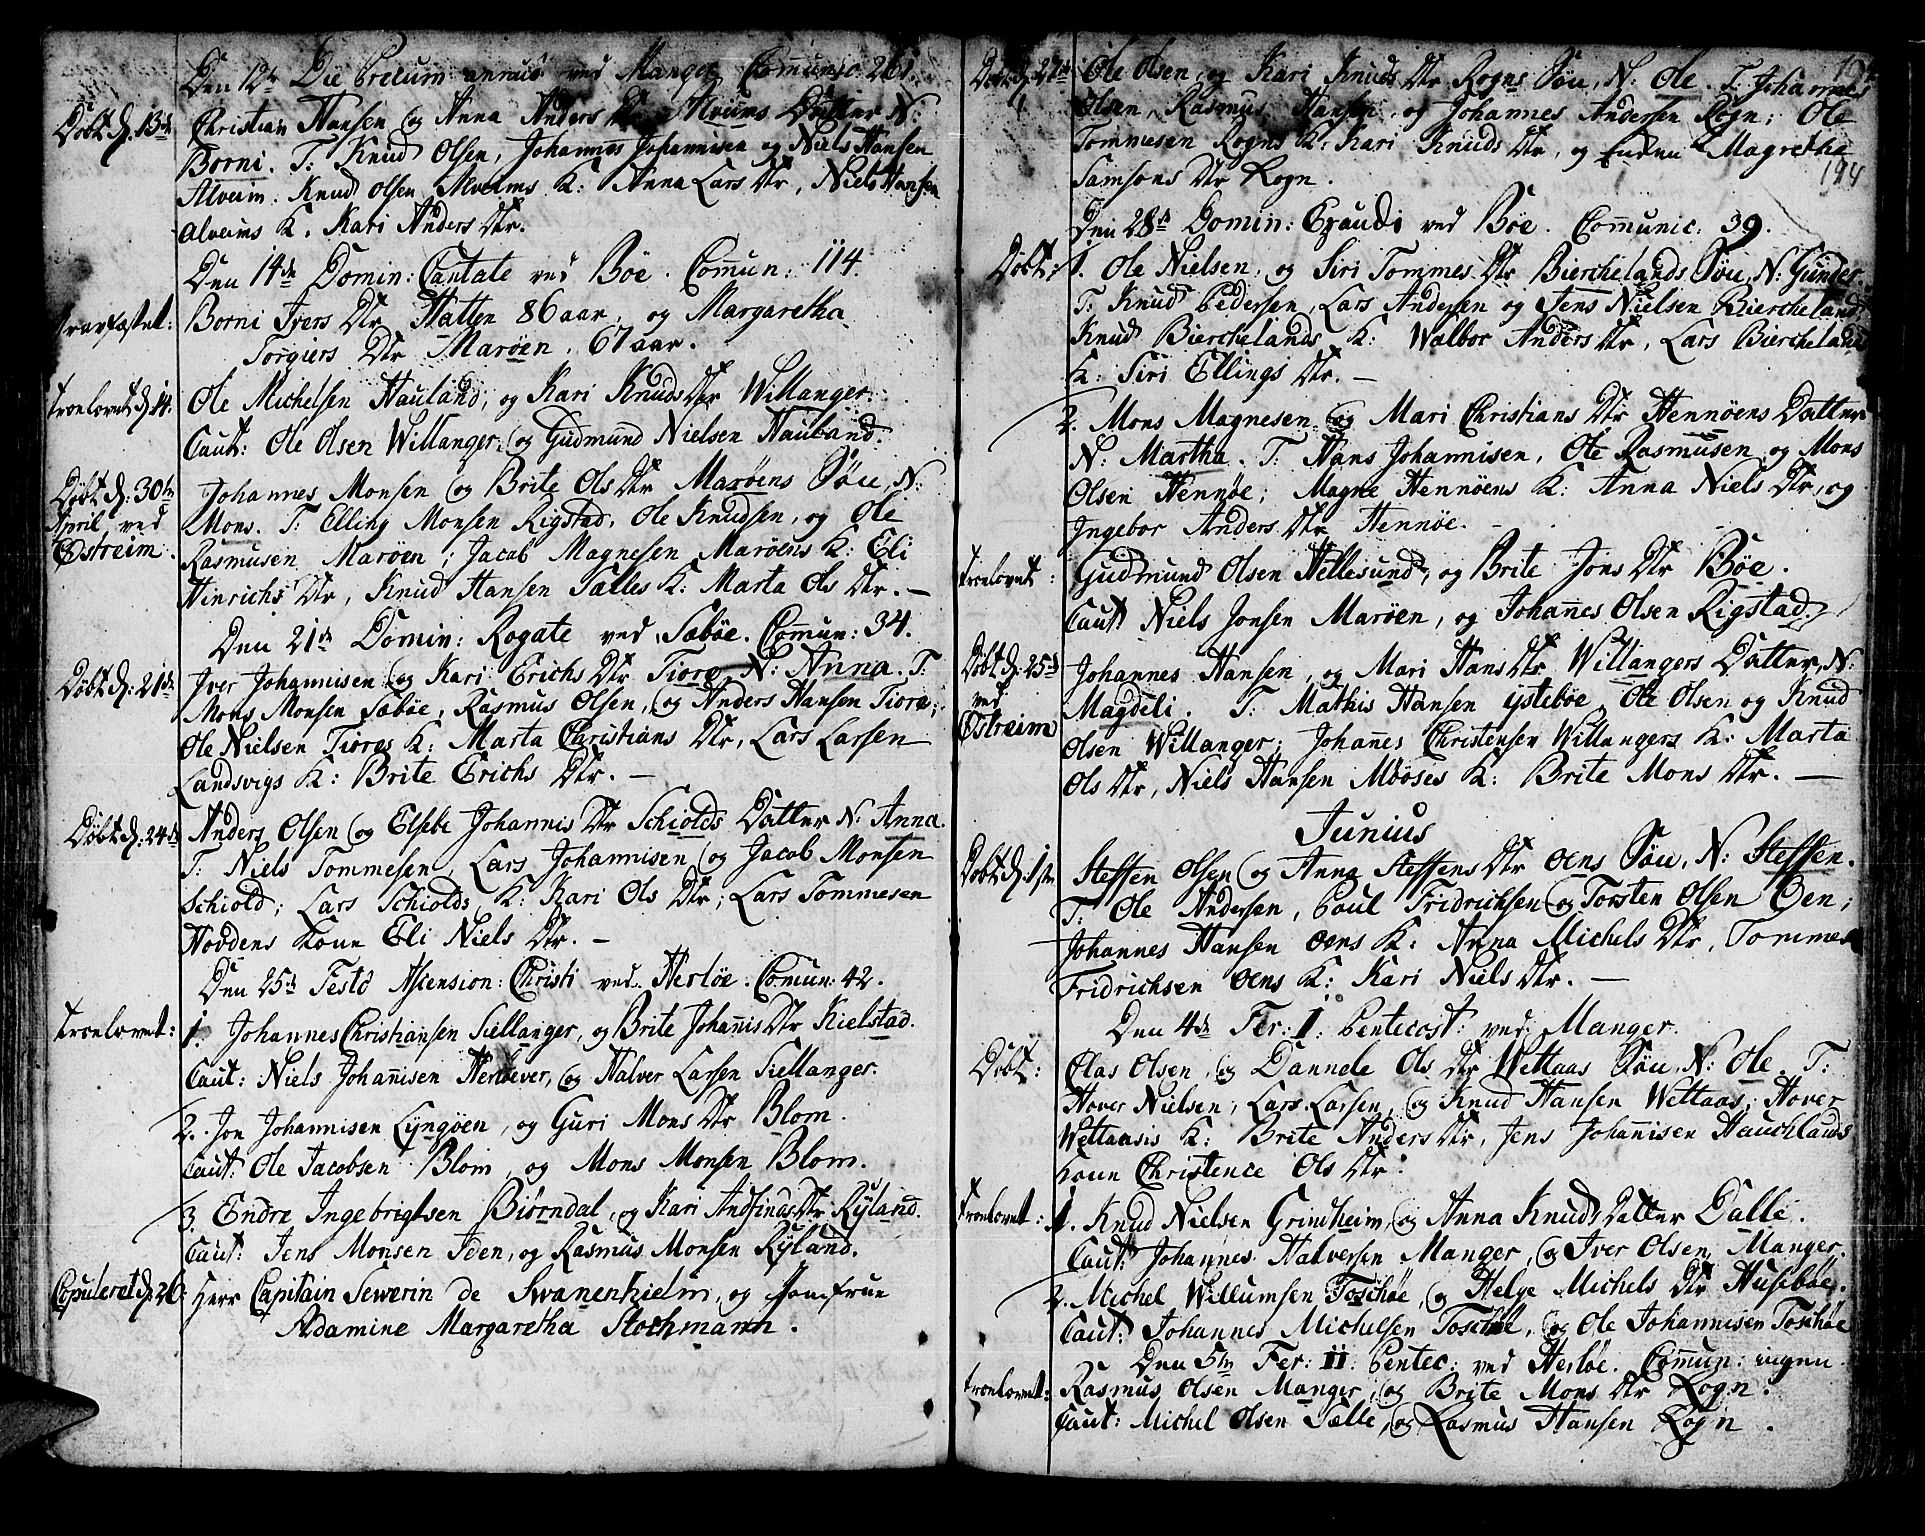 Den 12te Die Precum annuo ved Manger Comunic. 261.
Døbt d. 13de Christian Hansen og Anna Anders Dtr Alveims Datter N:
Borni. T: Knud Olsen, Johannes Johannisen og Niels Hansen
Alveim: Knud Olsen Alveims K: Anna Lars Dtr, Niels Hansen
Alveims K. Kari Anders Dtr.
Den 14de Domin: Cantate ved Bøe. Comun: 114.
Borni Ivers Dtr Hatten 86 aar, og Margaretha
Torgiers Dtr Marøen, 67 aar.
Troelovet d. 14. Ole Michelsen Hauland, og Kari Knuds Dtr Willanger.
Caut: Ole Olsen Willanger, og Gudmund Nielsen Hauland.
Døbt d. 30te Johannes Monsen og Brite Ols Dtr Marøens Søn, N:
April ved Mons. T: Elling Monsen Rigstad, Ole Knudsen, og Ole
Østreim. Rasmusen Marøen; Jacob Magnesen Marøens K: Eli
Hinrichs Dtr, Knud Hansen Sælles K: Marta Ols Dtr. —
Den 21de Domin: Rogate ved Sæbøe. Comun: 34.
Døbt d. 21de Iver Johannisen og Kari Erichs Dtr Tiore N: Anna. T:
Mons Monsen Sæbøe, Rasmus Olsen, og Anders Hansen Tiore;
Ole Nielsen Tiores K: Marta Christians Dtr, Lars Larsen
Landsvigs K: Brite Erichs Dtr. —
Døbt d. 24de Anders Olsen og Elsebe Johannis Dtr Schiolds Datter N: Anna.
T: Niels Tommesen, Lars Johannisen og Jacob Monsen
Schiold; Lars Schiolds K: Kari Ols Dtr; Lars Tommesen
Hovdens Kone Eli Niels Dtr. —
Den 25de Festo Ascension: Christi ved Herløe. Comun: 42.
Troelovet: 1. Johannes Christiansen Siellanger, og Brite Johannis Dtr Kielstad.
Caut: Niels Johannisen Herløever, og Halver Larsen Siellanger.
2. Jon Johannisen Lyngøen, og Guri Mons Dtr Blom.
Caut: Ole Jacobsen Blom, og Mons Monsen Blom.
3. Endre Ingebrigtsen Biørndal, og Kari Andfinds Dtr Ryland.
Caut: Jens Monsen Iden, og Rasmus Monsen Ryland.
Copuleret d. 26. Herr Capitain Sewerin de Swanenhielm, og Jomfrue
Adamine Margaretha Stochmann.
194
Døbt d. 27de Ole Olsen, og Kari Knuds Dtr Rogns Søn, N: Ole. T: Johannes
Olsen, Rasmus Hansen, og Johannes Andersen Rogn; Ole
Tommesen Rogns K: Kari Knuds Dtr, og Enken Magretha
Samsons Dtr Rogn.
Den 28de Domin: Exaudi ved Bøe. Comunic: 39.
Døbt: 1. Ole Nielsen, og Siri Tommes Dtr Bierchelands Søn, N: Gunder.
T: Knud Pedersen, Lars Andersen og Jens Nielsen Biercheland;
Knud Bierchelands K: Walbor Anders Dtr, Lars Biercheland
K: Siri Ellings Dtr. —
2. Mons Magnesen og Mari Christians Dtr Hennøens Datter
N: Martha. T: Hans Johannisen, Ole Rasmusen og Mons
Olsen Hennøe; Magne Hennøens K: Anna Niels Dtr, og
Ingebor Anders Dtr Hennøe. —
Troelovet: Gudmund Olsen Hellesund, og Brite Jons Dtr Bøe.
Caut: Niels Jonsen Marøen, og Johannes Olsen Rigstad.
Døbt d. 25de Johannes Hansen, og Mari Hans Dtr Willangers Datter, N:
ved Magdeli. T: Mathis Hansen Ystebøe, Ole Olsen og Knud
Østreim Olsen Willanger; Johannes Christensen Willangers K: Marta
Ols Dtr, Niels Hansen Mooses K: Brite Mons Dtr. —
Junius
Døbt d. 1ste Steffen Olsen og Anna Steffens Dtr Oens Søn, N: Steffen.
T: Ole Andersen, Poul Fridrichsen og Torsten Olsen Oen;
Johannes Hansen Oens K: Anna Michels Dtr, Tommes
Fridrichsen Oens K: Kari Niels Dtr. —
Den 4de Fer: I: Pentecost: ved Manger.
Døbt: Olas Olsen, og Dannele Ols Dtr Wettaas Søn, N: Ole. T:
Hover Nielsen, Lars Larsen, og Knud Hansen Wettaas; Hover
Wettaasis K: Brite Anders Dtr, Jens Johannisen Hauchlands
Kone Christence Ols Dtr.
Troelovet: 1. Knud Nielsen Grindheim, og Anna Knuds Datter Dalle.
Caut: Johannes Halversen Manger, og Iver Olsen Manger.
2. Michel Willumsen Toschøe, og Helge Michels Dtr Husebøe.
Caut: Johannes Michelsen Toschøe, og Ole Johannisen Toschøe
Den 5te Fer: II: Pentec: ved Herløe. Comun: ingen.
Troelovet: Rasmus Olsen Manger, og Brite Mons Dtr Rogn.
Caut: Michel Olsen Sælle, og Rasmus Hansen Rogn.